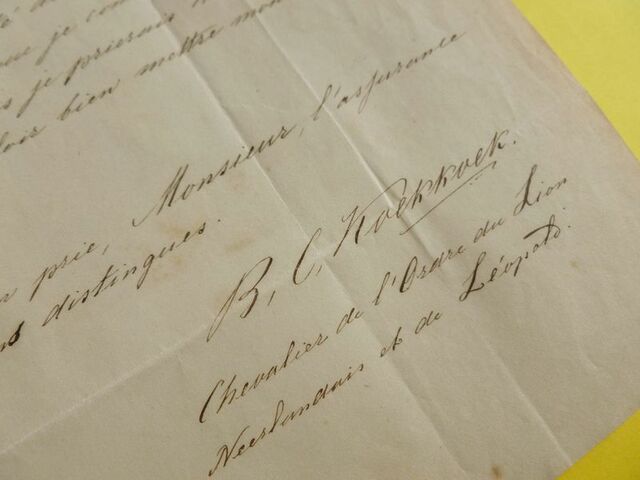 je
je prierais
bien mettre mon
prie, Monsieur, l'assurance
distingues.
B. C. Koekkoek.
Chevalier de l'Ordre du Lion
Neerlandais et de Léopold.